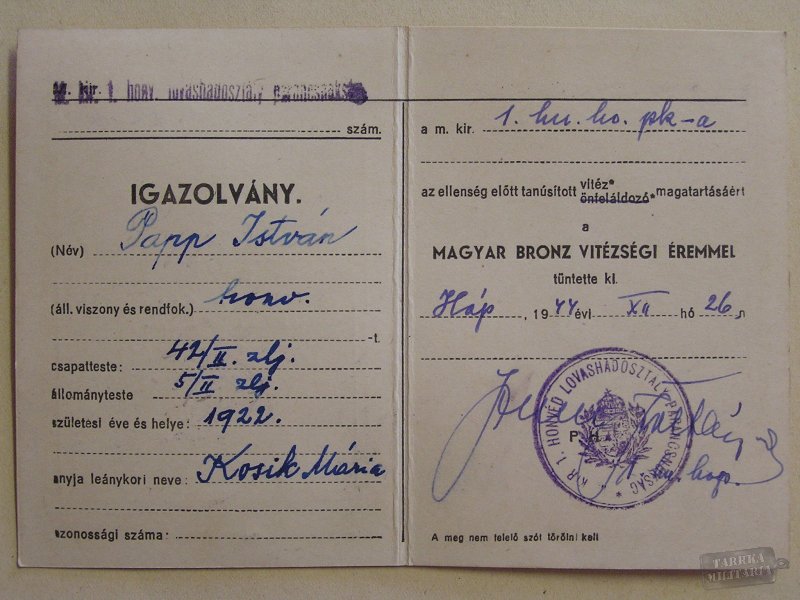 M. kir. 1. honv. lovashadosztály parancsnokság
szám.
IGAZOLVÁNY.
(Név) Papp István
(áll. viszony és rendfok.) honv.
-t.
csapatteste: 42/II. zlj.
állományteste 5/II zlj.
születesi éve és helye: 1922.
anyja leánykori neve: Kosik Mária
azonossági száma:
a m. kir. 1. hu. ho. pk-a
az ellenség előtt tanúsított vitéz* önfeláldozó* magatartásáért
a
MAGYAR BRONZ VITÉZSÉGI ÉREMMEL
tüntette ki.
Háp, 1944 évi XII hó 26-n
P. H.
M. KIR. 1. HONVÉD LOVASHADOSZTÁLY PARANCSNOKSÁG *
A meg nem felelő szót törölni kell
TARRKA MILITARIA